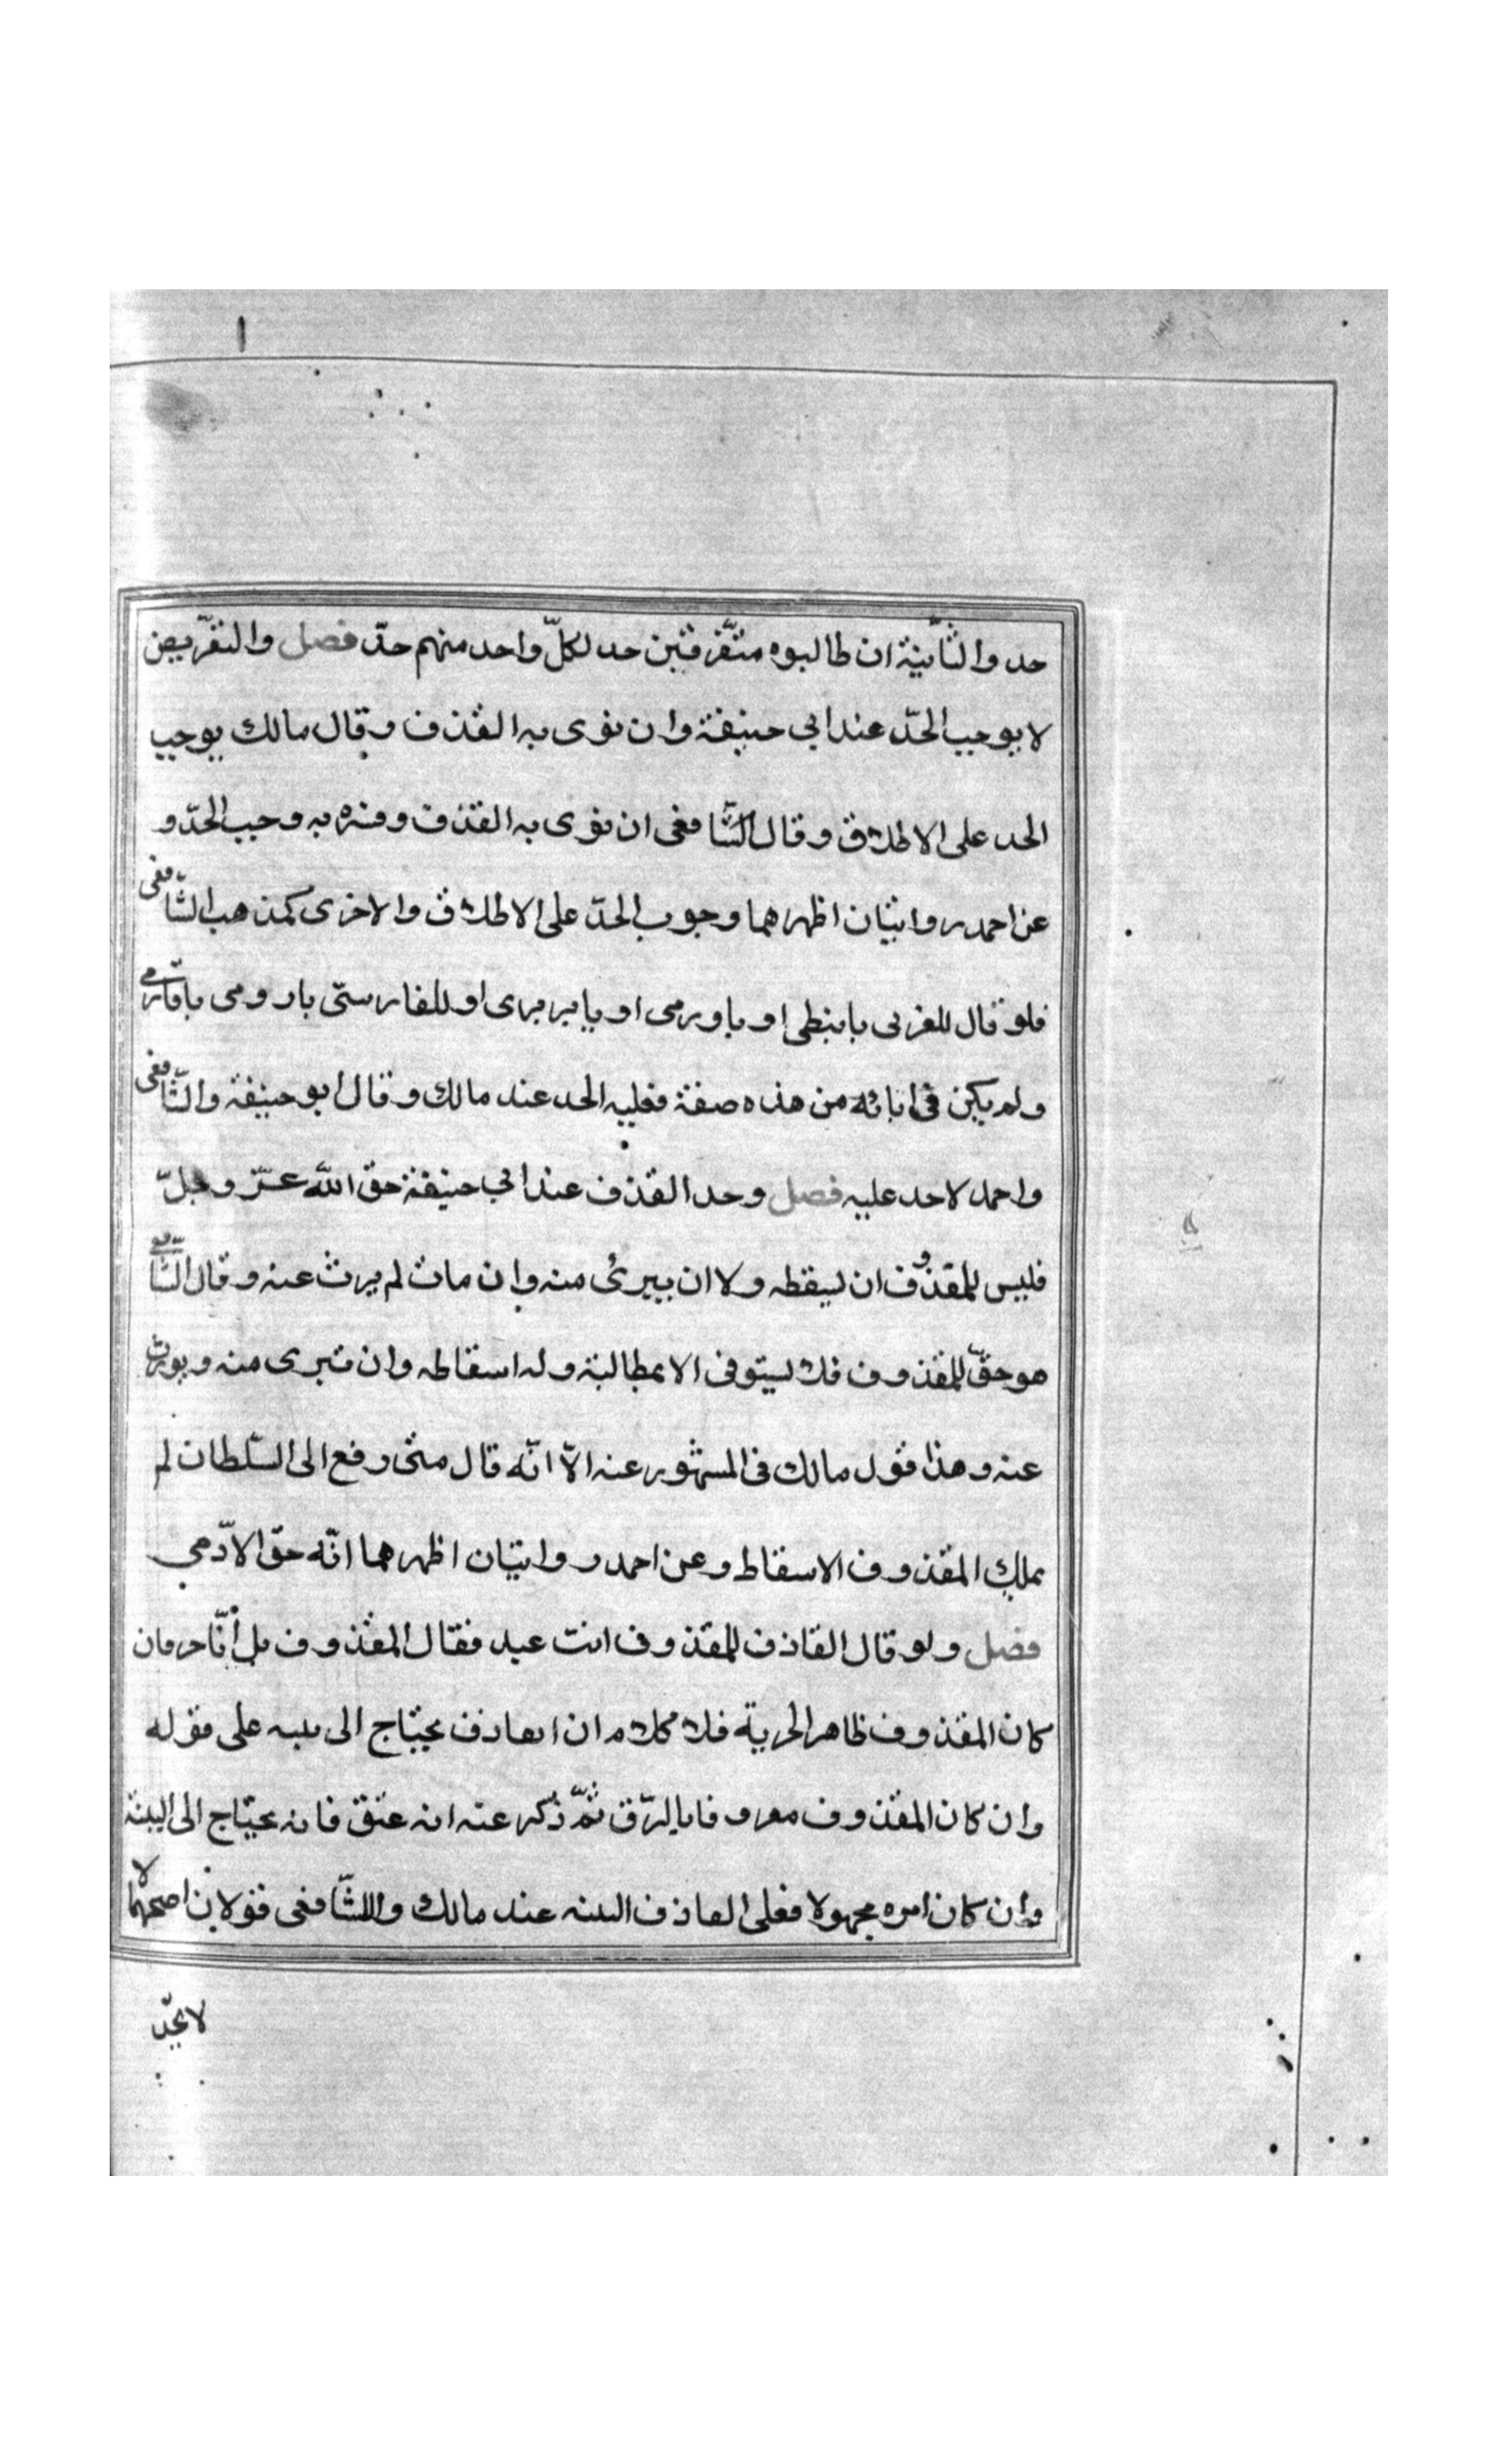 حد والثانية ان طالبوه متفرقين حد لكلّ واحد منهم حدّ فصل والتعريض
لا يوجب الحدّ عند ابي حنيفة وان نوى به القذف وقال مالك يوجب
الحد على الاطلاق وقال الشّافعى ان نوى به القذف وفسّره به وجب الحدّ و
عن احمد روايتان اظهرهما وجوب الحدّ على الاطلاق والاخرى كمذهب الشّافعى
فلو قال للعربى يا نبطى او يا رومى او يا بربرى او للفارسىّ يا رومى يا فارسى
ولم يكن فى ابائه من هذه صفة فعليه الحد عند مالك وقال ابو حنيفة والشّافعى
واحمد لا حد عليه فصل وحد القذف عند ابي حنيفة حق الله عزّ وجلّ
فليس للمقذوف ان يسقطه ولا ان يبرئ منه وان مات لم يرث عنه وقال الشّافعي
هو حقّ للمقذوف فلا يستوفى الا بمطالبة وله اسقاطه وان تبرى منه ويورث
عنه وهذا قول مالك فى المشهور عنه الاّ انّه قال متى رفع الى السّلطان لم
يملك المقذوف الاسقاط وعن احمد روايتان اظهرهما انّه حقّ الآدّمي
فصل ولو قال القاذف للمقذوف انت عبد فقال المقذوف بل أنا حر فان
كان المقذوف ظاهر الحرية فلا كلام ان القاذف يحتاج الى بينه على قوله
وان كان المقذوف معروفا بالرّق ثمّ ذكر عنه انه عتق فانه يحتاج الى البينة
وان كان امره مجهولا فعلى القاذف البينه عند مالك وللشّافعى قولان اصحهما لا
لا يحدّ